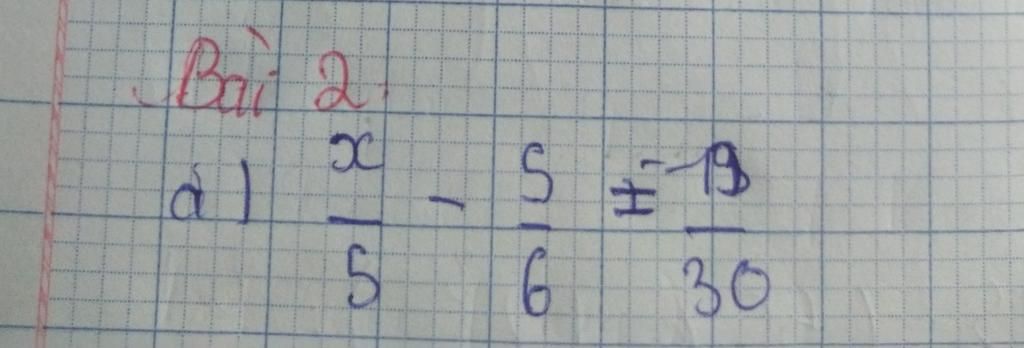 Bài 2.
d) x/5 - 5/6 = -19/30